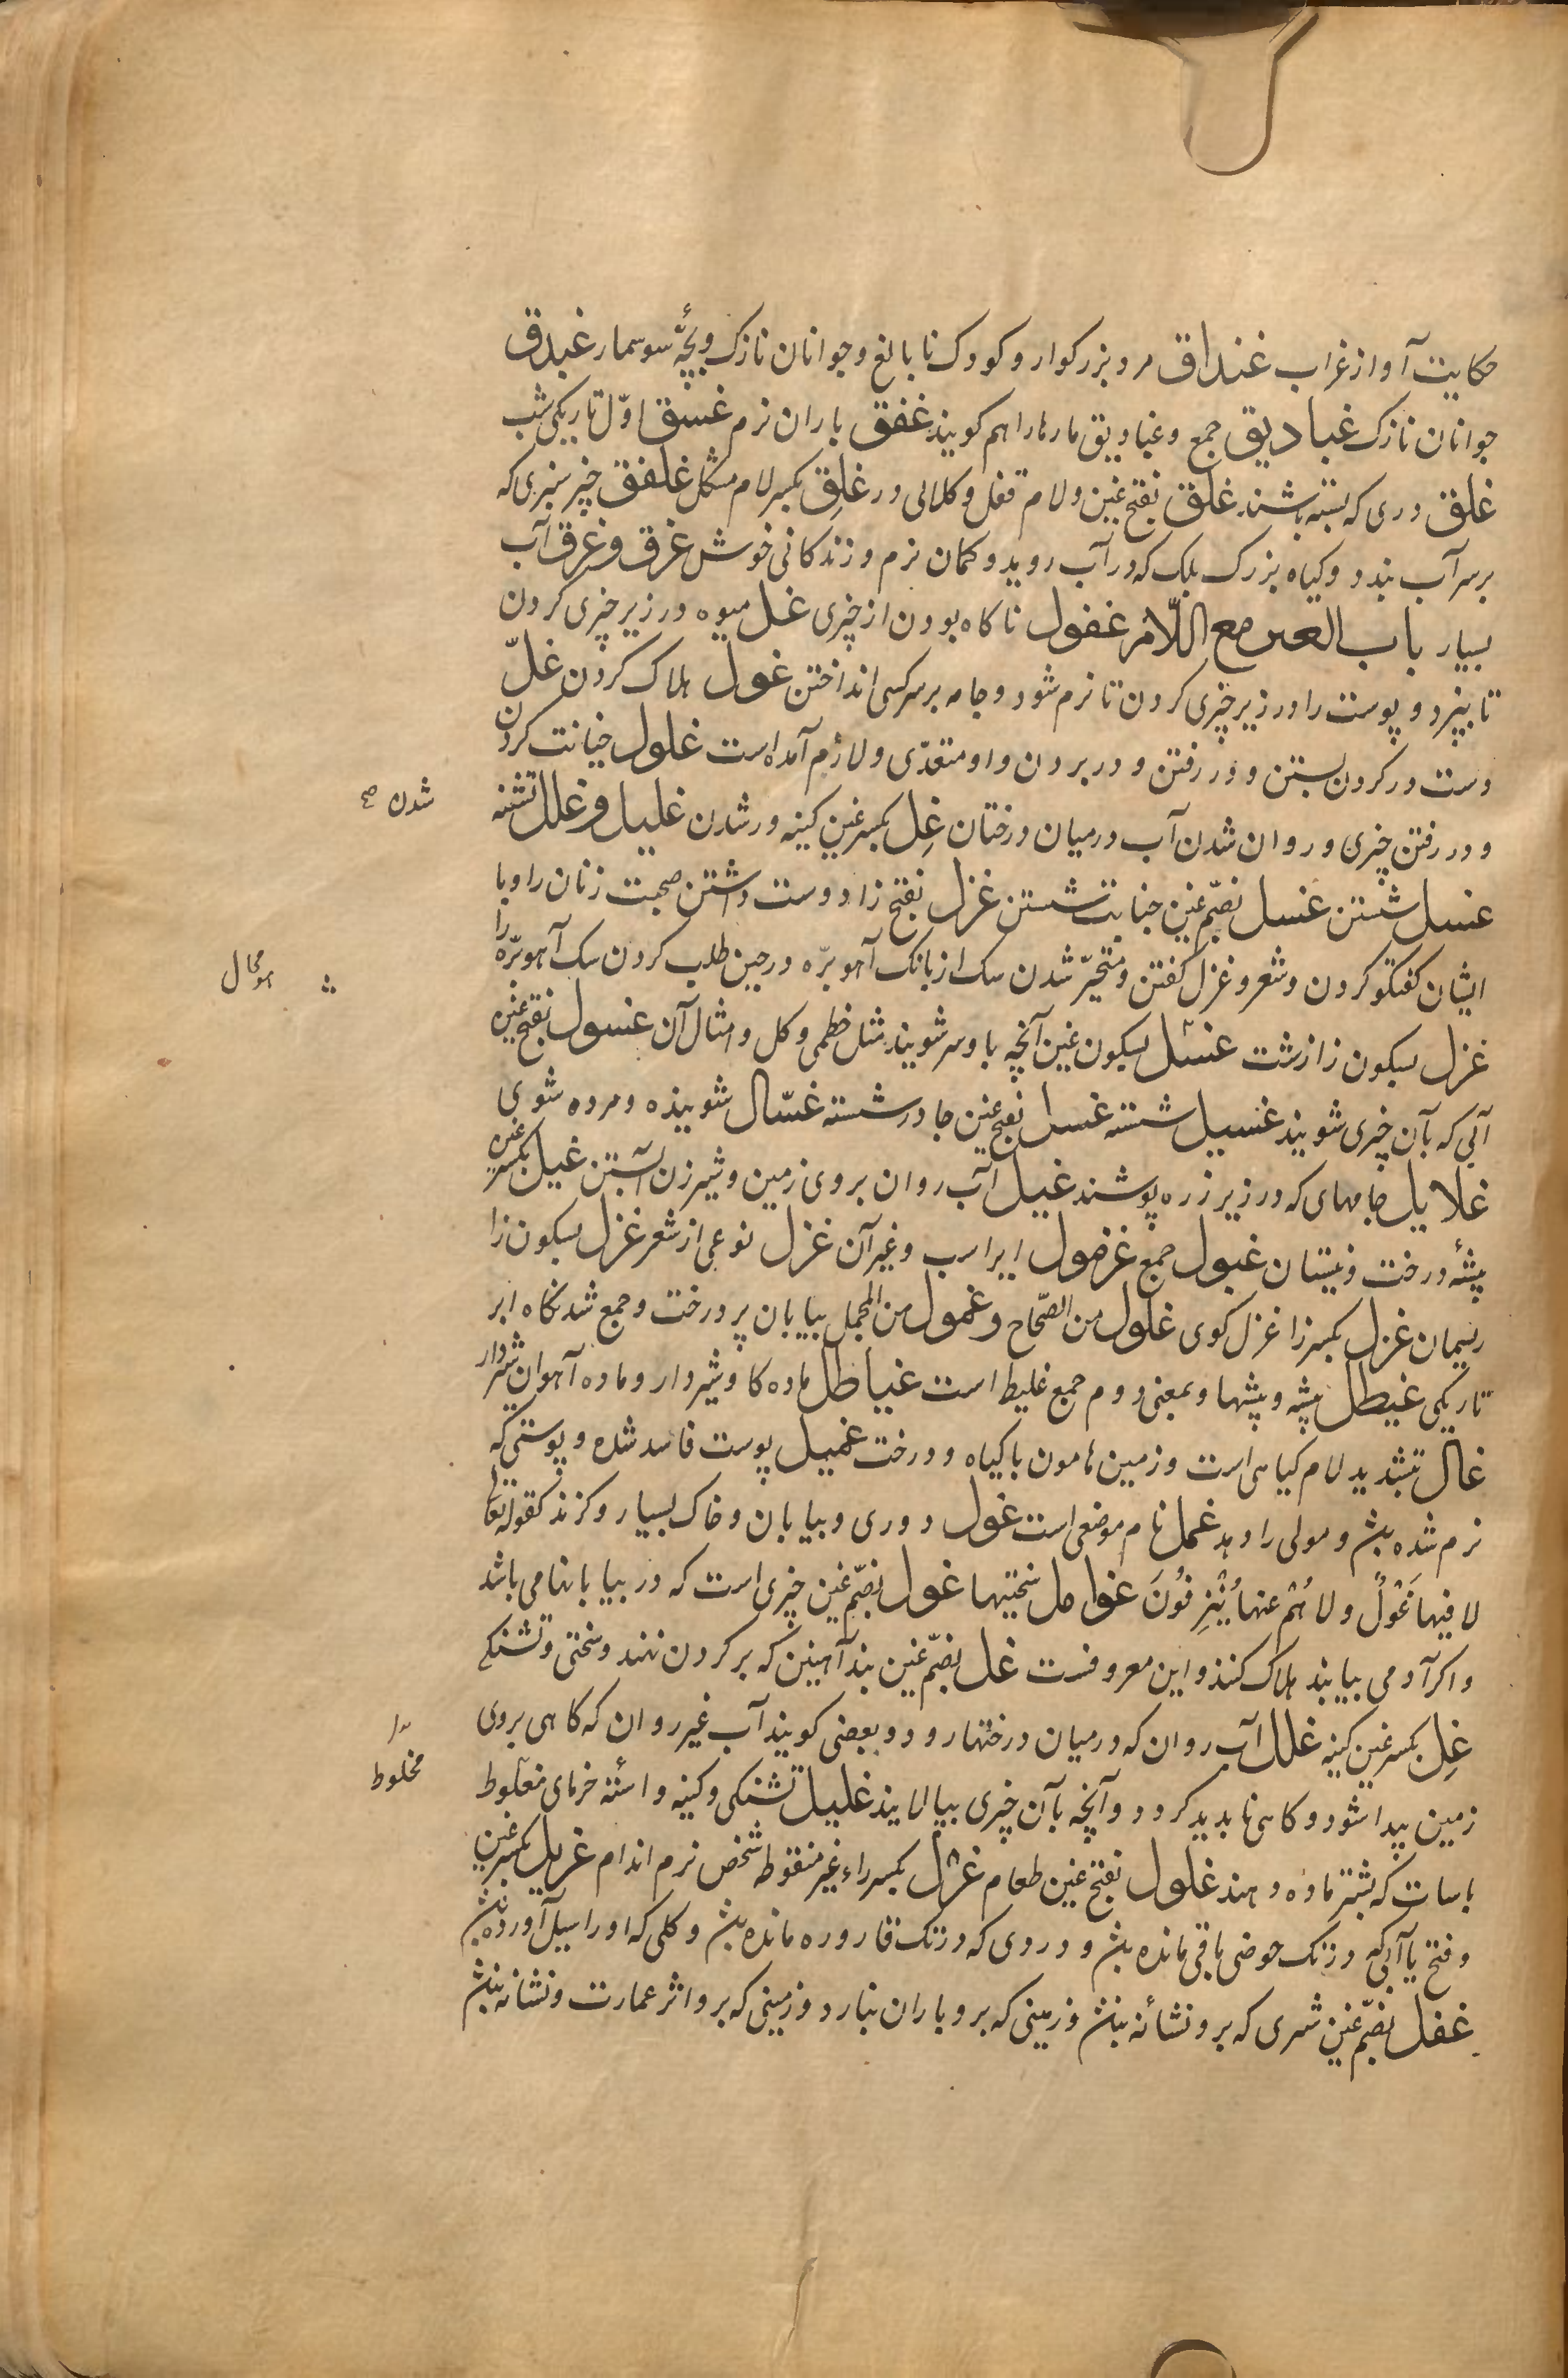 حکایت آواز غراب غنداق مرد بزرکوار و کودک نابالغ و جوانان نازک و بچّۀ سوسمار غبدق
جوانان نازک غبادیق جمع و غبادیق مارها را هم کویند غفق باران نرم غسق اوّل تاریکی شب
غلق دری که بسته باشند غلق بفتح غین و لام قفل و کلالی در غلِق بکسر لام مشکل غلفق چیز سبزی که
بر سر آب بندد و کیاه بزرک بلک که در آب روید و کمان نرم و زندکانی خوش غرق و غرق آب
بسیار باب الغین مع اللّام غفول ناکاه بودن از چیزی غمل میوه در زیر چیزی کردن
تا بپزد و پوست را در زیر چیزی کردن تا نرم شود و جامه بر سر کسی انداختن غول هلاک کردن غلّ
دست در کردن بستن و در رفتن و در بردن و او متعدّی و لازم آمده است غلول خیانت کردن
و در رفتن چیزی و روان شدن آب در میان درختان غِل بکسر غین کینه ور شدن غلیل و غلل تشنه
شدن صح
غسل شستن غسل بضمّ غین جنابت شستن غزل بفتح زا دوست داشتن صحبت زنان را و با
ایشان کفتکو کردن و شعر و غزل کفتن و متحیّر شدن سک از بانک آهو برّه در حین طلب کردن سک آهو برّه را
غزل بسکون زا زشت غسل بسکون غین آنچه باو سر شویند مثل خطمی و کل و امثال آن غسول بفتح غین
آبی که بآن چیزی شویند غسیل شسته غسل بفتح غین جادر شسته غسّال شوینده و مرده شوی
غلایل جامهای که در زیر زره پوشند غیل آب روان بر وی زمین و شیر زن آبستن غیل بکسر غین
بیشۀ درخت و نیستان غیول جمع غرضول ایر اسب و غیر آن غزل نوعی از شعر غزل بسکون زا
ریسمان غزل بکسر زا غزل کوی غلول من الصّحاح و غمول من المجمل بیابان پر درخت و جمع شدنکاه ابر
تاریکی غیطل بیشه و بیشها و بمعنی دوم جمع غلیط است غیاطل ماده کاو شیردار و ماده آهوان شیردار
غال بتشدید لام کیاهی است و زمین هامون با کیاه و درخت غمیل پوست فاسد شده و پوستی که
نرم شده بش و مولی را دهد غمل نام موضعی است غول دوری و بیابان و خاک بسیار و کزند کقوله تعالی
لا فیها غَوْلٌ و لا هُمْ عنها یُنْزِفُونَ غوایل سختیها غول بضمّ غین چیزی است که در بیابانها می باشد
و اکر آدمی بیابند هلاک کنند و این معروفست غل بضمّ غین بند آهنین که بر کردن نهند و سختی و تشنکی
غِل بکسر غین کینه غلل آب روان که در میان درختها رود و بعضی کویند آب غیر روان که کاهی بر وی
زمین پیدا شود و کاهی نابدید کردد و آنچه بآن چیزی بیالایند غلیل تشنکی و کینه و استه خرمای مغلوط
مخلوط
باسات که بشتر ماده دهند غلول بفتح غین طعام غرل بکسر راء غیر منقوطه شخص نرم اندام غریل بکسر غین
و فتح یا آبی که در تک حوضی باقی مانده بش و دردی که در تک قاروره مانده بش و کلی که او را سیل آورده بش
غفل بضمّ غین شهری که برو نشانه نبش و زمینی که برو باران نبارد و زمینی که برو اثر عمارت و نشانه نبش